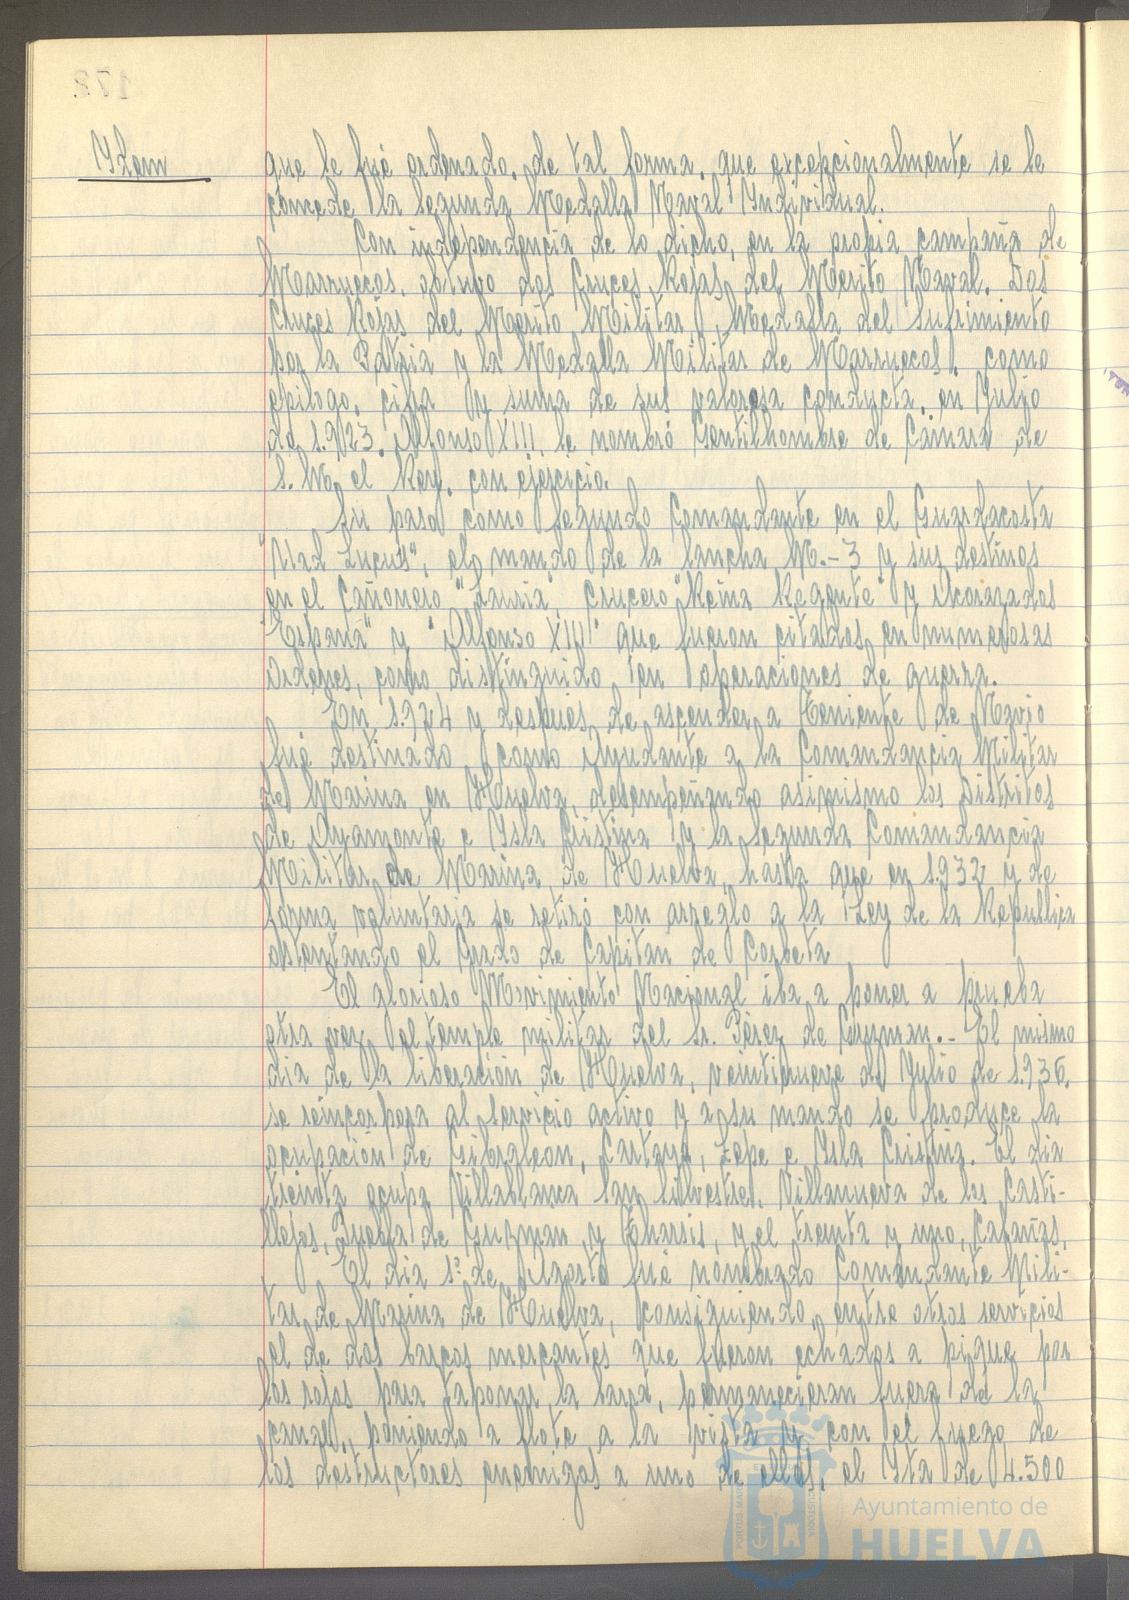 Idem
que le fué ordenado, de tal forma, que excepcionalmente se le
concede la Segunda Medalla Naval Individual.
Con independencia de lo dicho, en la propia campaña de
Marruecos, obtuvo dos Cruces Rojas del Mérito Naval. Dos
Cruces Rojas del Mérito Militar, Medalla del Sufrimiento
por la Patria y la Medalla Militar de Marruecos, como
epílogo, cifra y suma de sus valerosa conducta, en Julio
de 1.923, Alfonso XIII, le nombró Gentilhombre de Cámara de
S. M. el Rey, con ejercicio.
Su paso como Segundo Comandante en el Guardacosta
"Uad Lucus", el mando de la lancha M.-3 y sus destinos
en el Cañonero "Lauria", Crucero "Reina Regente" y Acorazados
"España" y "Alfonso XIII" que fueron citados en numerosas
ordenes, como distinguido en operaciones de guerra.
En 1.924 y después de ascender a Teniente de Navio
fué destinado como Ayudante a la Comandancia Militar
de Marina, en Huelva, desempeñando asimismo los Distritos
de Ayamonte e Isla Cristina y la Segunda Comandancia
Militar de Marina, de Huelva, hasta que en 1.932 y de
forma voluntaria se retiró con arreglo a la Ley de la República
ostentando el Grado de Capitan de Corbeta
El glorioso Movimiento Nacional iba a poner a prueba
otra vez el temple militar del Sr. Pérez de Guzman.- El mismo
dia de la liberación de Huelva, veintinueve de Julio de 1.936,
se reincorpora al servicio activo y a su mando se produce la
ocupación de Gibraleon, Cartaya, Lepe e Isla Cristina. El dia
treinta ocupa Villablanca San Silvestre, Villanueva de los Casti-
llejos, Puebla de Guzman, y Tharsis, y el treinta y uno, Calañas,
El dia 1º de Agosto fué nombrado Comandante Mili-
tar de Marina de Huelva, consiguiendo, entre otros servicios
el de dos barcos mercantes que fueron echados a pique por
los rojos para taponar la barra, permanecieran fuera de la
canal, poniendo a flote a la vista y con el fuego de
los destructores enemigos a uno de ellos, el Ita de 4.500
Ayuntamiento de
HUELVA